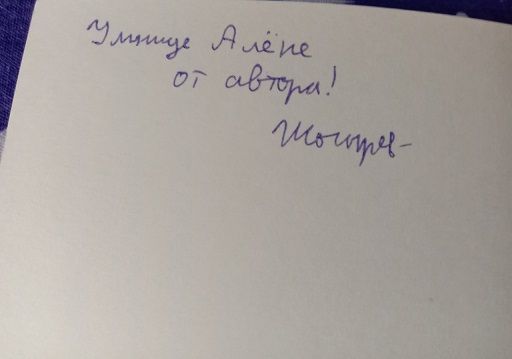 Умнице Алёне
от автора!